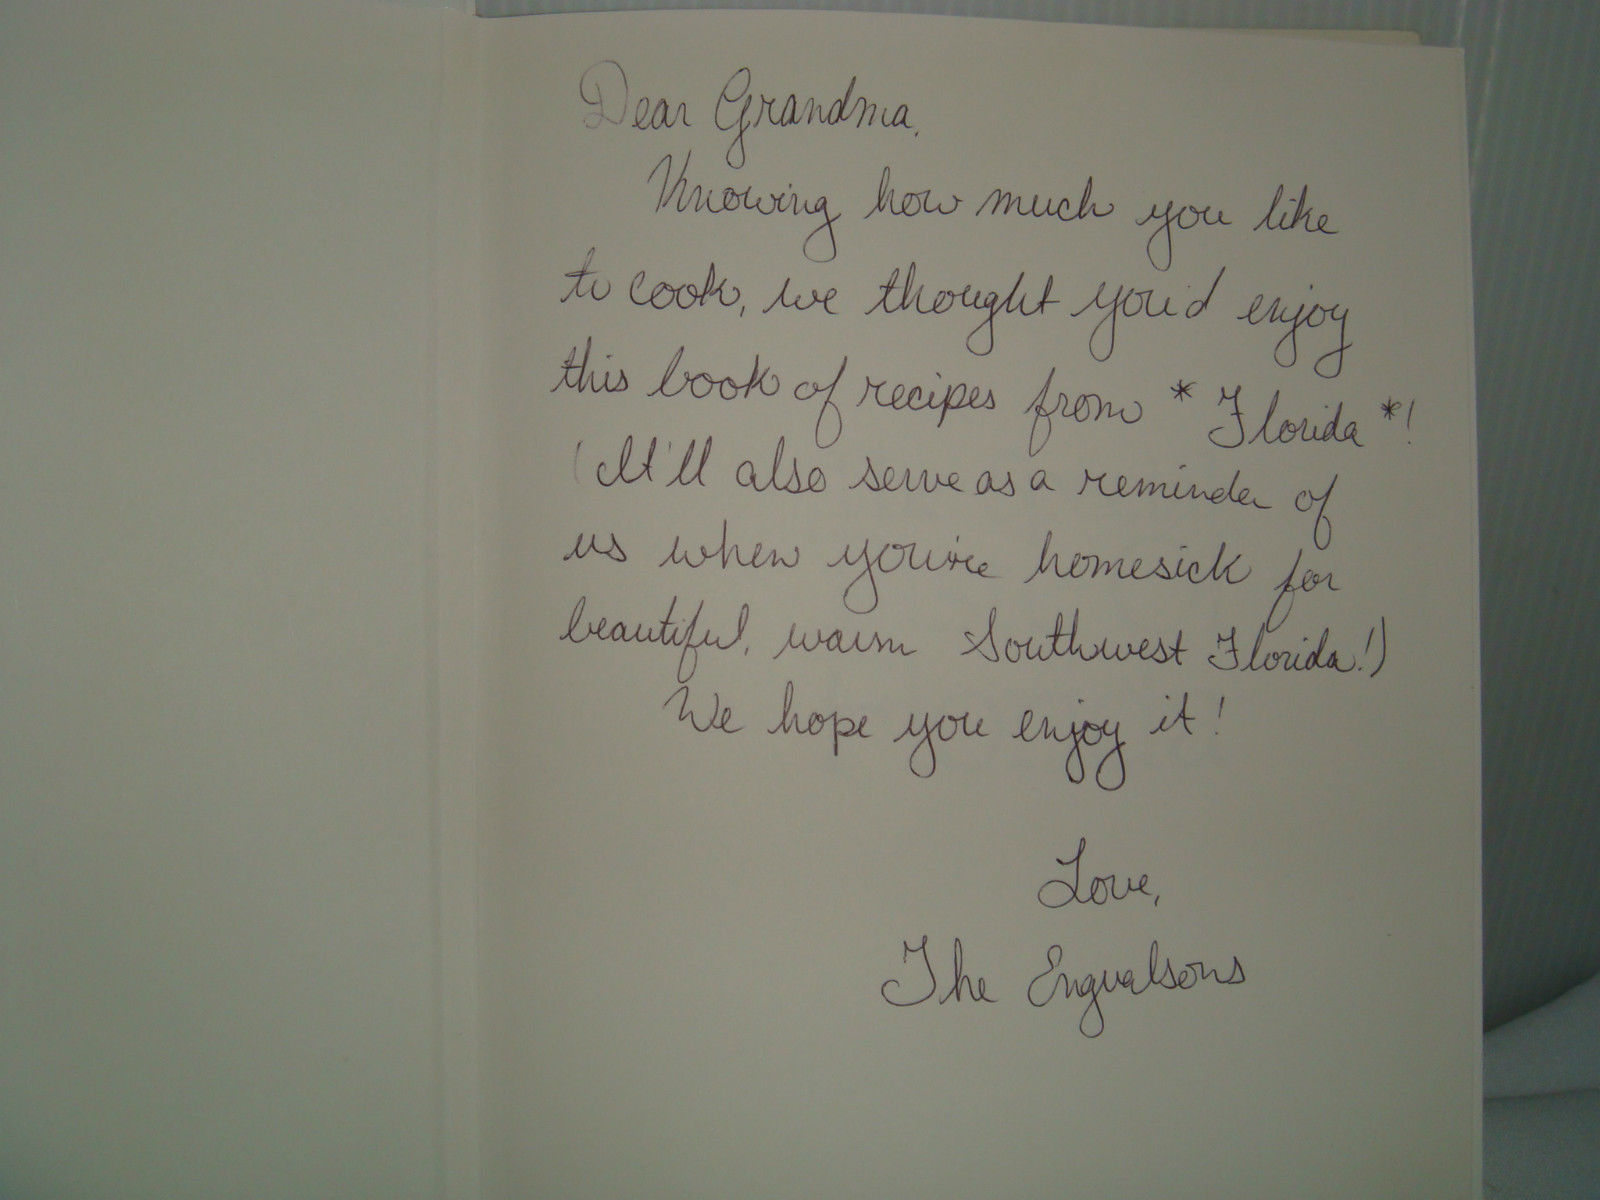 Dear Grandma,
Knowing how much you like
to cook, we thought you'd enjoy
this book of recipes from * Florida *!
(It'll also serve as a reminder of
us when you're homesick for
beautiful, warm Southwest Florida!)
We hope you enjoy it!
Love,
The Engvalsons